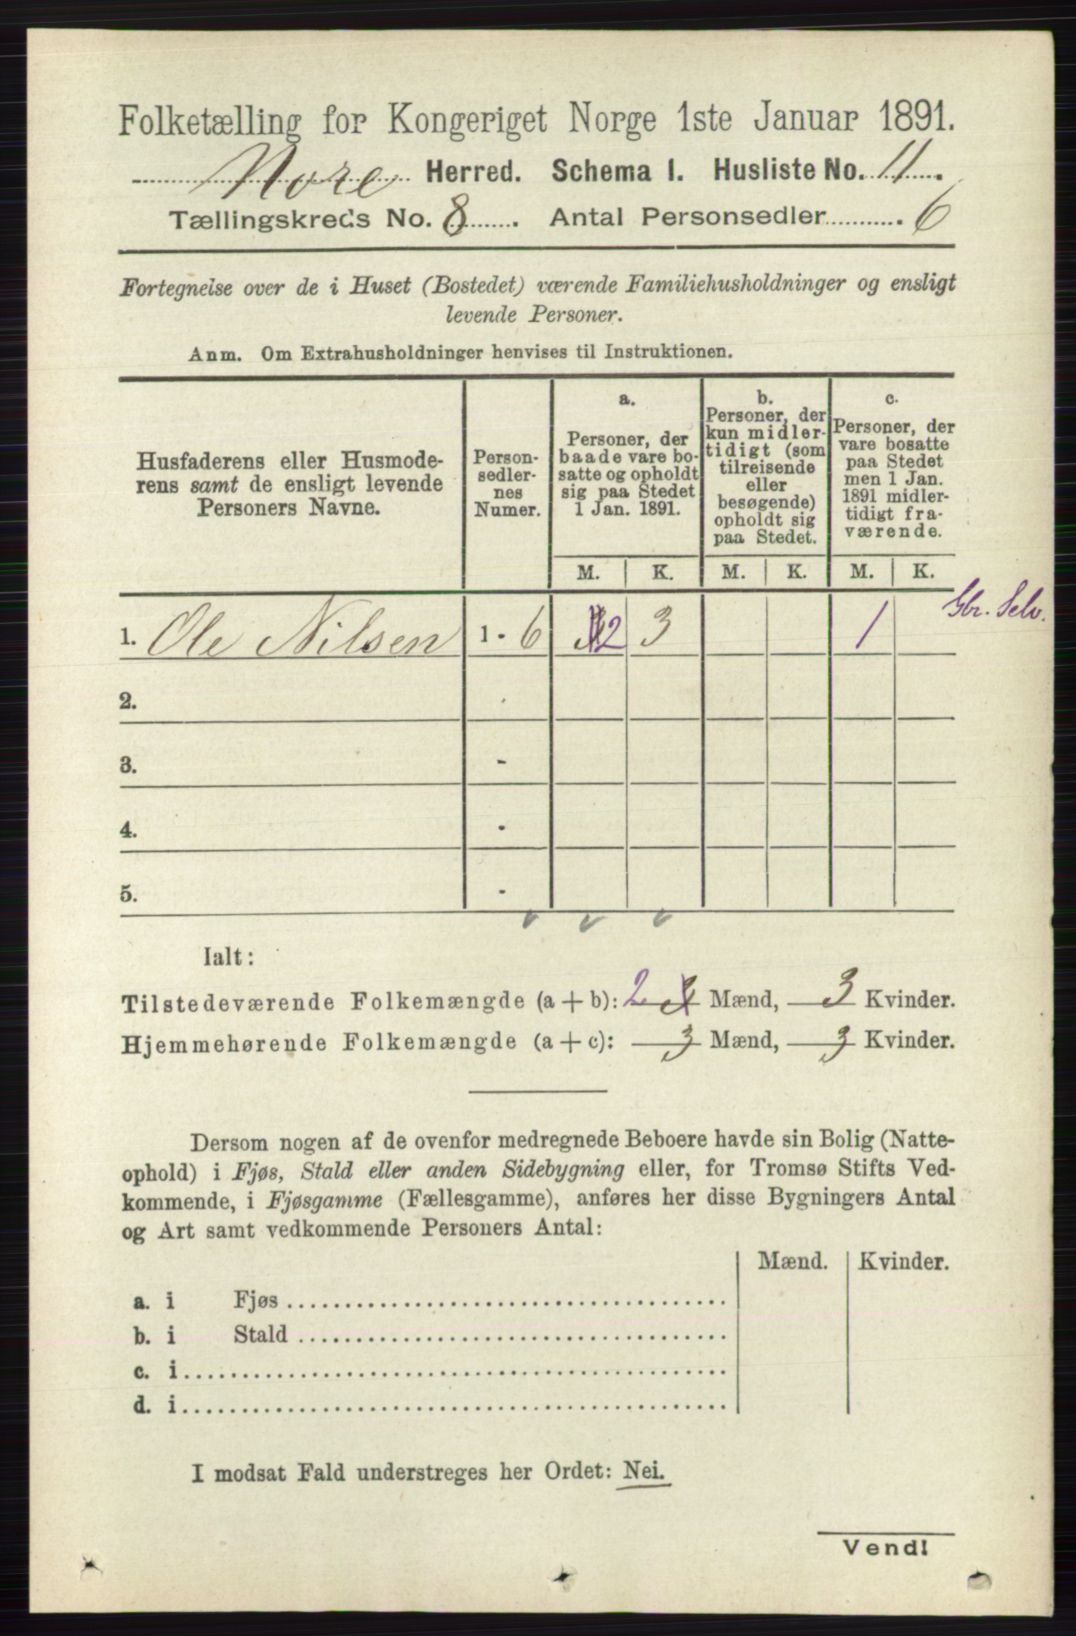 Folketælling for Kongeriget Norge 1ste Januar 1891.
Nore Herred. Schema I. Husliste No. 11.
Tællingskreds No. 8. Antal Personsedler 6
Fortegnelse over de i Huset (Bostedet) værende Familiehusholdninger og ensligt
levende Personer.
Anm. Om Extrahusholdninger henvises til Instruktionen.
Husfaderens eller Husmode-
rens samt de ensligt levende
Personers Navne.
Person-
sedler-
nes
Numer.
a.
Personer, der
baade vare bo-
satte og opholdt
sig paa Stedet
1 Jan. 1891.
b.
Personer, der
kun midler-
tidigt (som
tilreisende
eller
besøgende)
opholdt sig
paa Stedet.
c.
Personer, der
vare bosatte
paa Stedet
men 1 Jan.
1891 midler-
tidigt fra-
værende.
M. K. M. K. M. K.
1. Ole Nilsen 1 - 6 2 3 1 Gbr. Selv.
2. -
3. -
4. -
5. -
Ialt:
Tilstedeværende Folkemængde (a + b): 2 3 Mænd, 3 Kvinder.
Hjemmehørende Folkemængde (a + c): 3 Mænd, 3 Kvinder.
Dersom nogen af de ovenfor medregnede Beboere havde sin Bolig (Natte-
ophold) i Fjøs, Stald eller anden Sidebygning eller, for Tromsø Stifts Ved-
kommende, i Fjøsgamme (Fællesgamme), anføres her disse Bygningers Antal
og Art samt vedkommende Personers Antal:
Mænd. Kvinder.
a. i Fjøs
b. i Stald
c. i
d. i
I modsat Fald understreges her Ordet: Nei.
Vend!